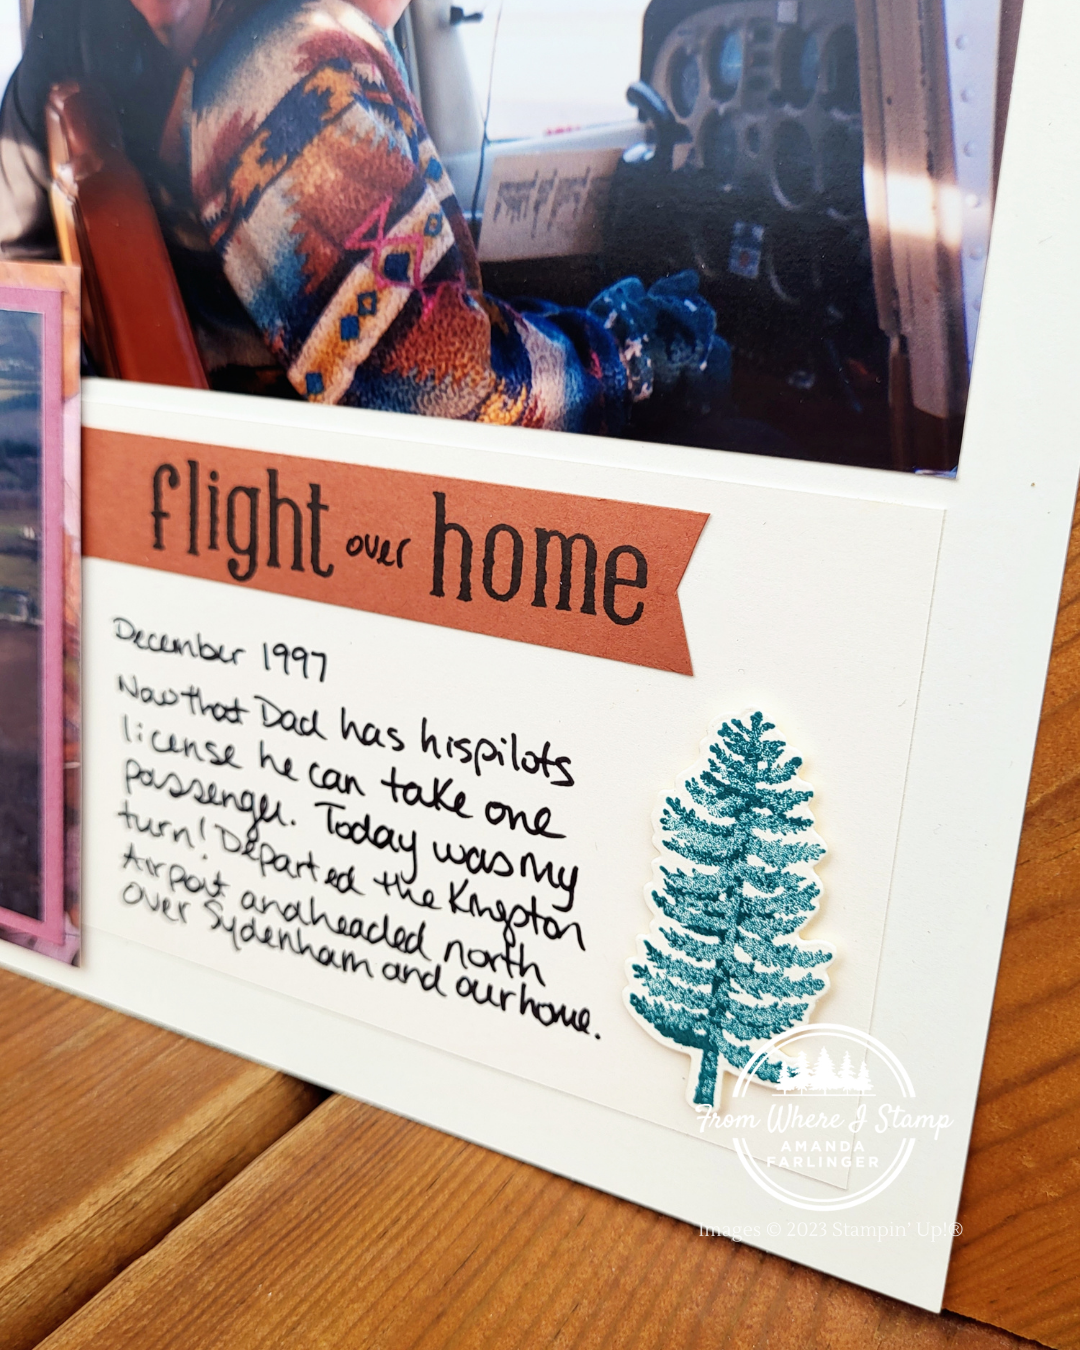 flight over home
December 1997
Now that Dad has his pilots
license he can take one
passenger. Today was my
turn! Departed the Kingston
Airport and headed north
over Sydenham and our home.
From Where I Stamp
AMANDA
FARLINGER
Images © 2023 Stampin' Up!®